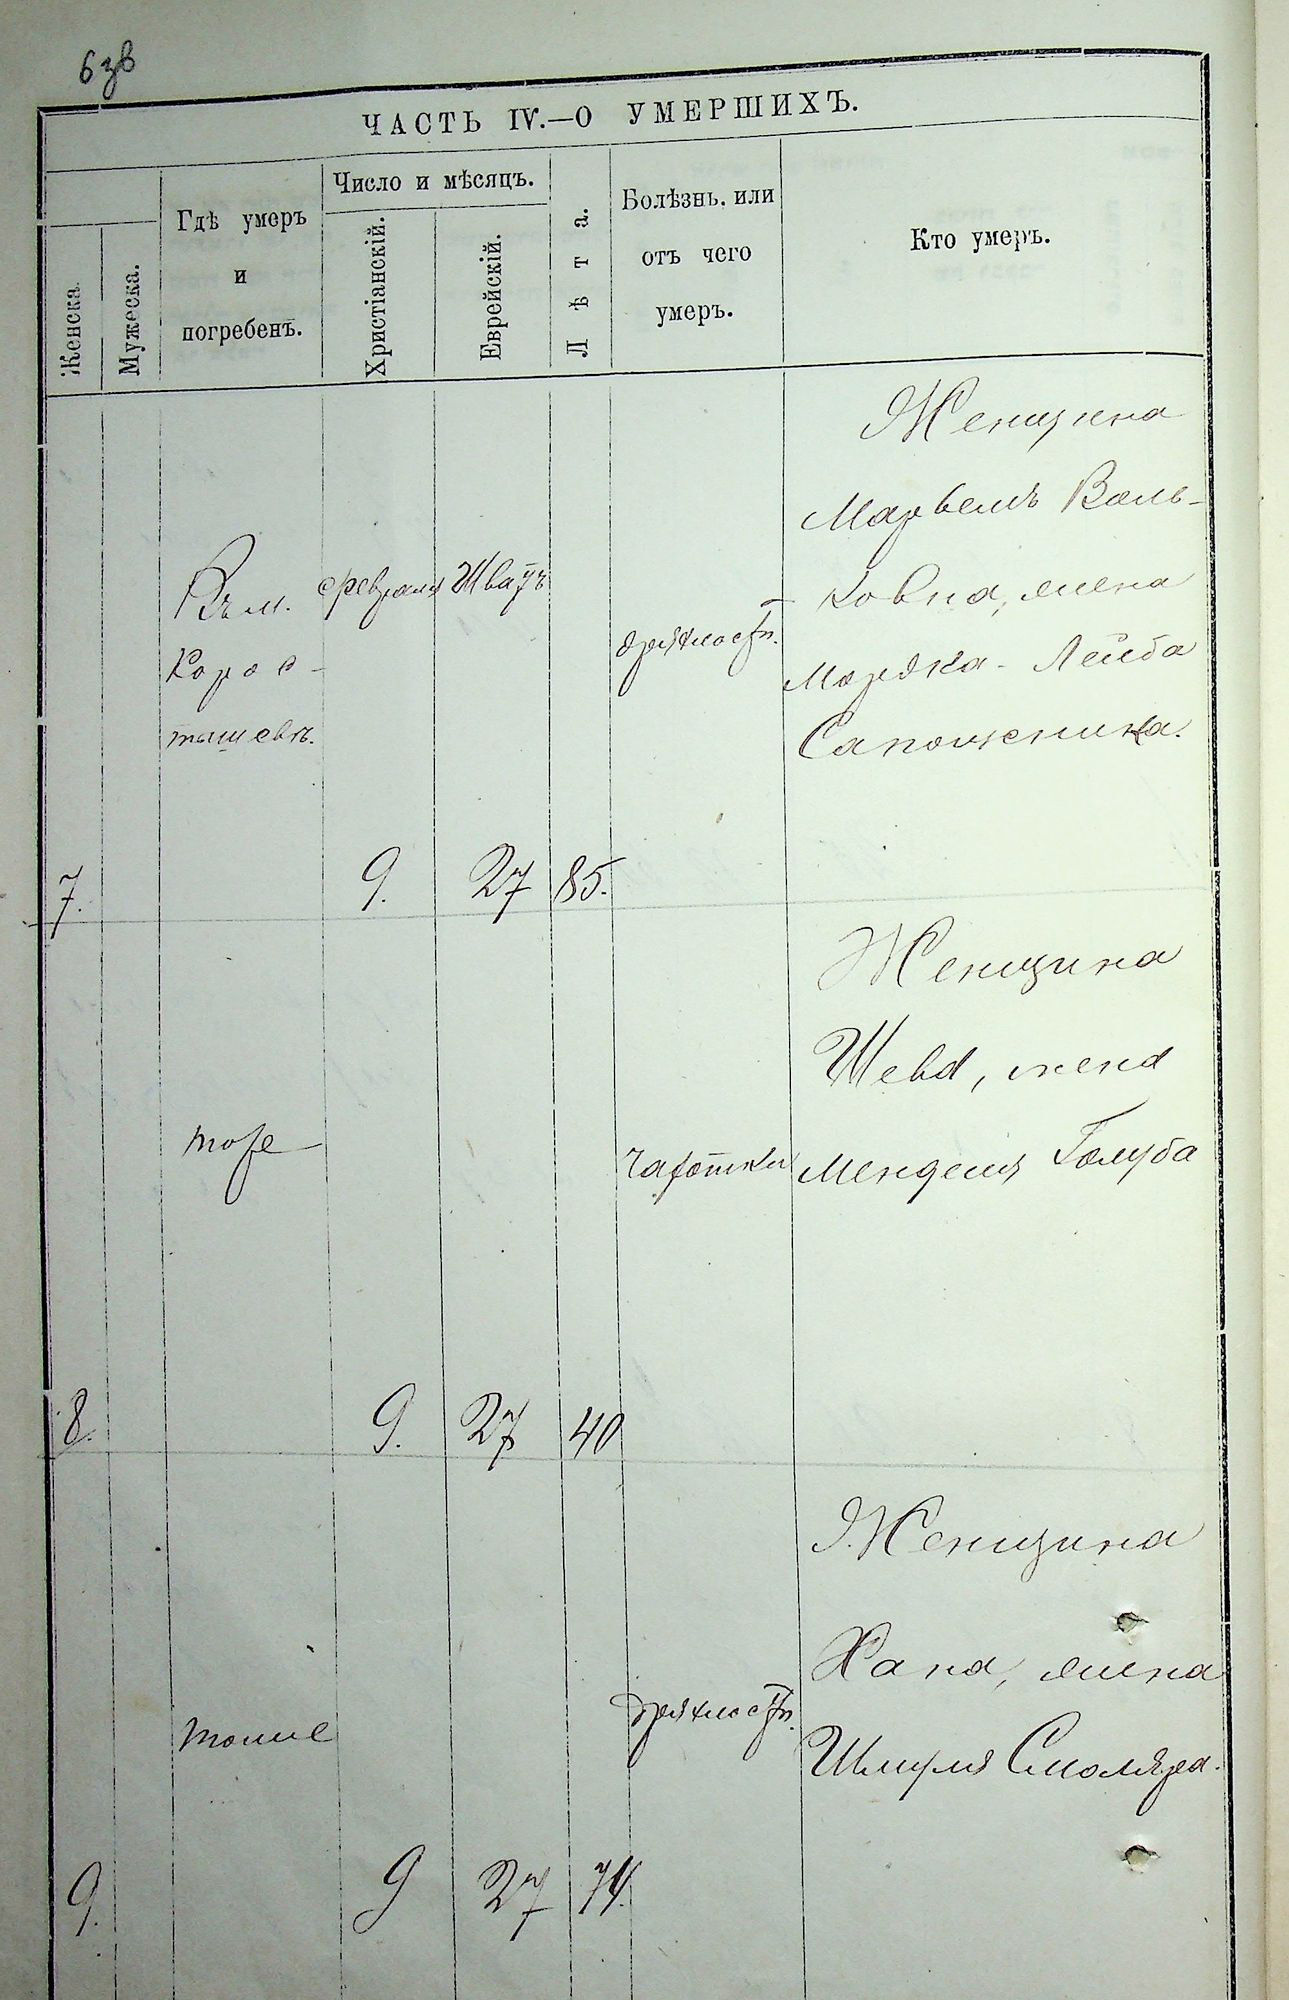 ЧАСТЬ IV.—О УМЕРШИХЪ.
Женска.
Мужеска.
Гдѣ умеръ
и
погребенъ.
Число и мѣсяцъ.
Христіанскій.
Еврейскій.
Лѣта.
Болѣзнь. или
отъ чего
умеръ.
Кто умеръ.
7.
Въ м.
Корос-
тышевѣ.
Февраля
9.
Шватъ
27
85.
дряхлости.
Женщина
Марьемъ Воль-
ковна, жена
Мордка-Лейба
Сапожника.
8.
тоже
9.
27
40
чахотки
Женщина
Шева, жена
Менделя Голуба
9.
тоже
9
27
74.
дряхлости.
Женщина
Хана, жена
Шмуля Смоляра.